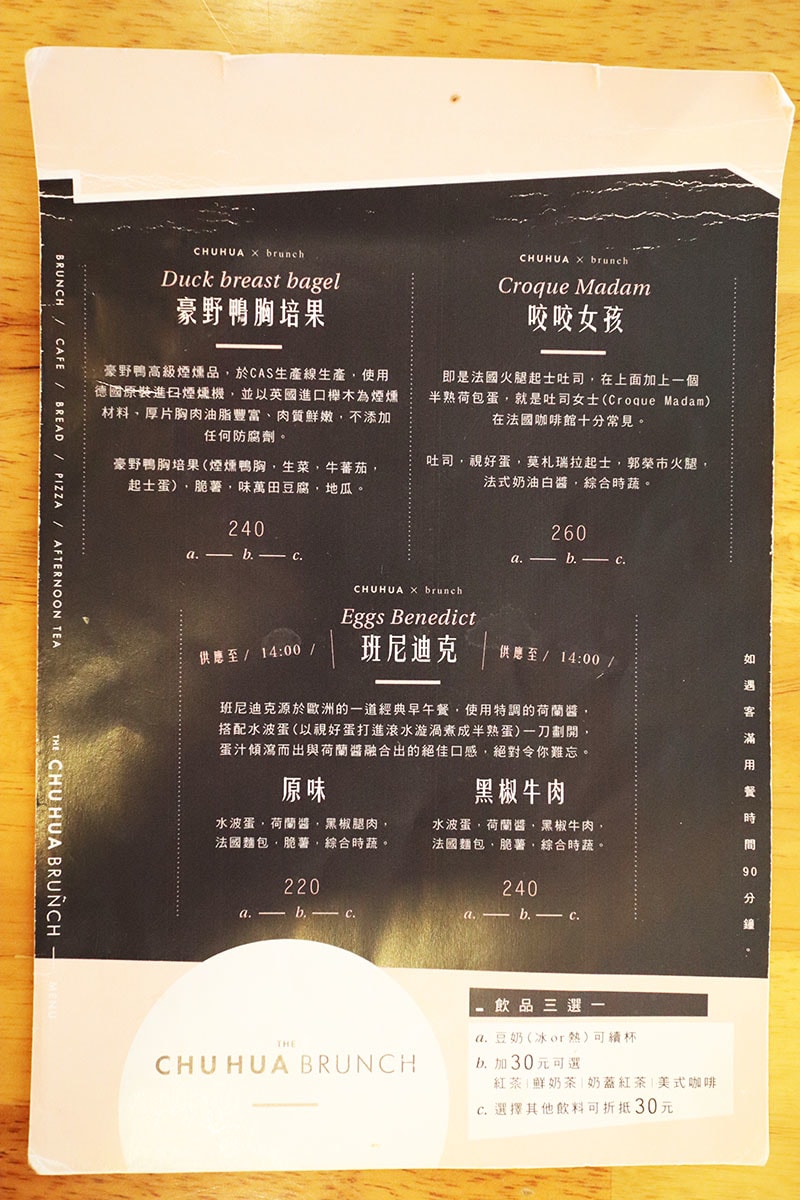 CHUHUA × brunch
Duck breast bagel
豪野鴨胸培果
豪野鴨高級煙燻品，於CAS生產線生產，使用
德國原裝進口煙燻機，並以英國進口櫸木為煙燻
材料、厚片胸肉油脂豐富、肉質鮮嫩，不添加
任何防腐劑。
豪野鴨胸培果(煙燻鴨胸，生菜，牛蕃茄，
起士蛋)，脆薯，味萬田豆腐，地瓜。
240
a. — b. — c.
CHUHUA × brunch
Croque Madam
咬咬女孩
即是法國火腿起士吐司，在上面加上一個
半熟荷包蛋，就是吐司女士(Croque Madam)
在法國咖啡館十分常見。
吐司，視好蛋，莫札瑞拉起士，郭榮市火腿，
法式奶油白醬，綜合時蔬。
260
a. — b. — c.
CHUHUA × brunch
Eggs Benedict
供應至 / 14:00 /
班尼迪克
供應至 / 14:00 /
班尼迪克源於歐洲的一道經典早午餐，使用特調的荷蘭醬，
搭配水波蛋(以視好蛋打進滾水漩渦煮成半熟蛋)一刀劃開，
蛋汁傾瀉而出與荷蘭醬融合出的絕佳口感，絕對令你難忘。
原味
水波蛋，荷蘭醬，黑椒腿肉，
法國麵包，脆薯，綜合時蔬。
220
a. — b. — c.
黑椒牛肉
水波蛋，荷蘭醬，黑椒牛肉，
法國麵包，脆薯，綜合時蔬。
240
a. — b. — c.
BRUNCH / CAFE / BREAD / PIZZA / AFTERNOON TEA
THE CHUHUA BRUNCH — MENU
如遇客滿用餐時間90分鐘。
THE
CHUHUA BRUNCH
飲品三選一
a. 豆奶(冰or熱)可續杯
b. 加30元可選
紅茶|鮮奶茶|奶蓋紅茶|美式咖啡
c. 選擇其他飲料可折抵30元